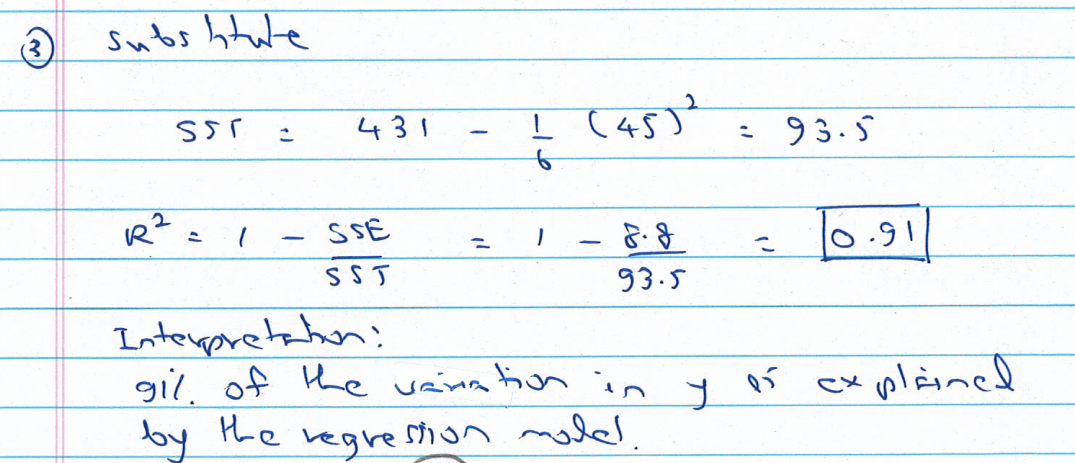 ③ substitute
SST = 431 - 1/6 (45)² = 93.5
R² = 1 - SSE/SST = 1 - 8.8/93.5 = 0.91
Interpretation:
91% of the variation in y is explained
by the regression model.